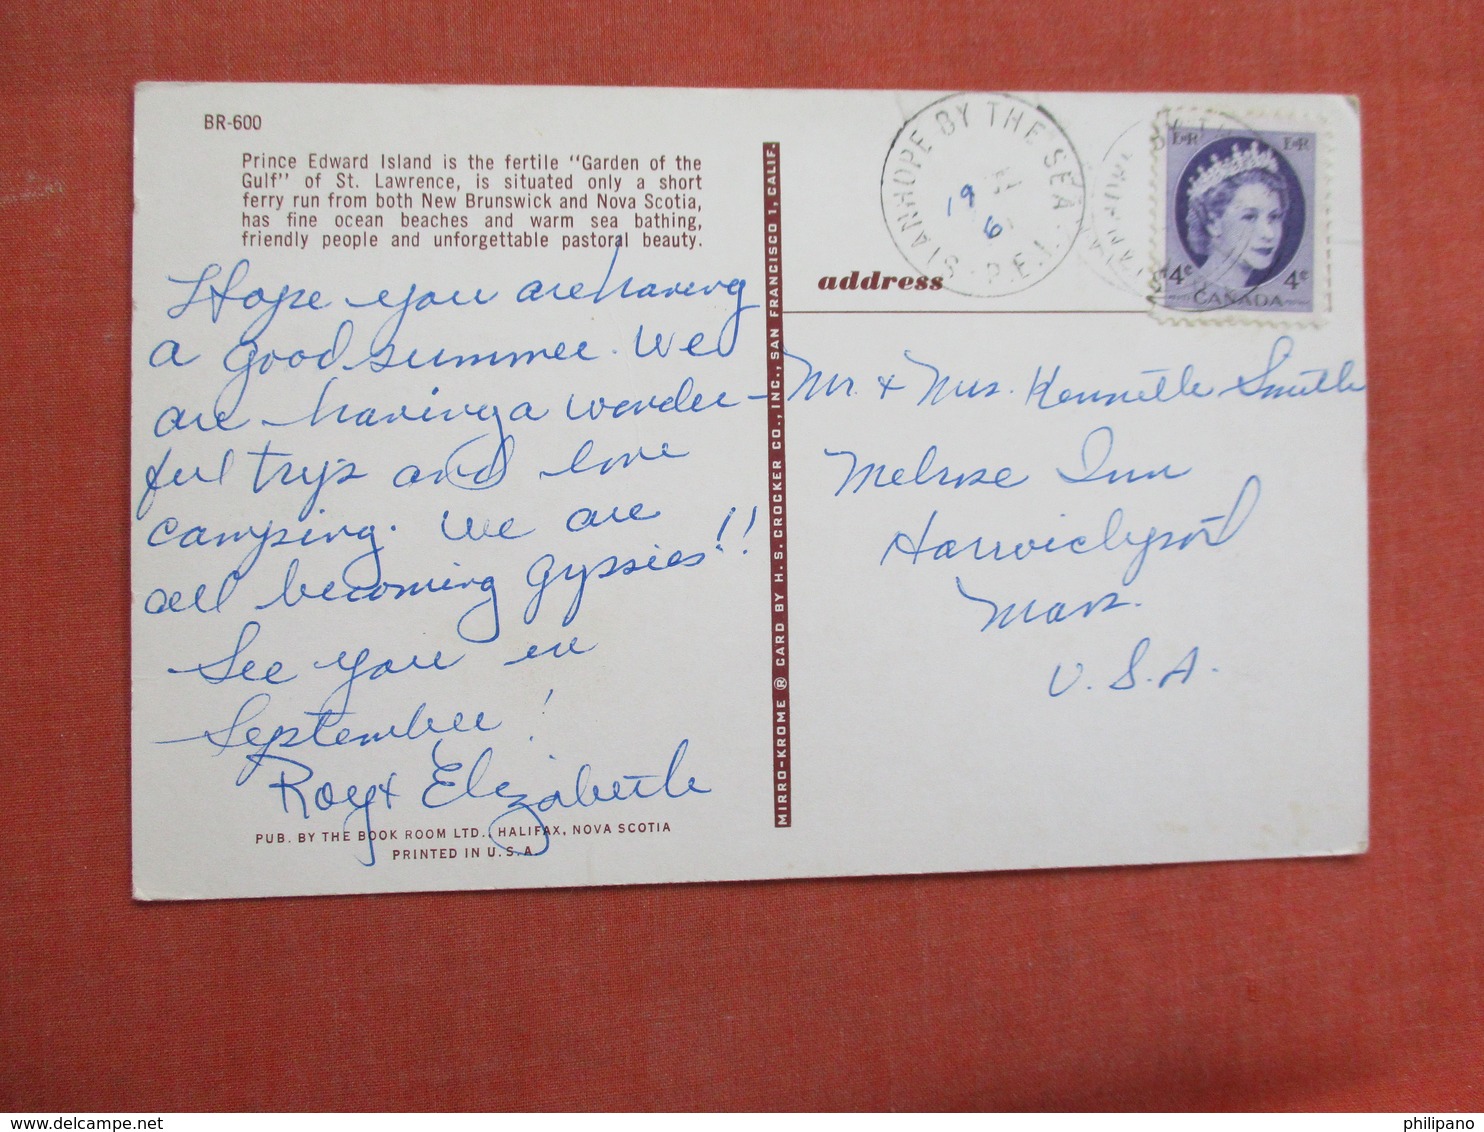 BR-600
Prince Edward Island is the fertile "Garden of the
Gulf" of St. Lawrence, is situated only a short
ferry run from both New Brunswick and Nova Scotia,
has fine ocean beaches and warm sea bathing,
friendly people and unforgettable pastoral beauty.
Hope you are having
a good summer. We
are having a wonder-
ful trip and love
camping. We are
all becoming gypsies!!
See you in
September!
Roy & Elizabeth
PUB. BY THE BOOK ROOM LTD., HALIFAX, NOVA SCOTIA
PRINTED IN U.S.A.
MIRRO-KROME ® CARD BY H. S. CROCKER CO., INC., SAN FRANCISCO 1, CALIF.
STANHOPE BY THE SEA
P.E.I.
19
6
E R E R
4¢ 4¢
CANADA
address
Mr. & Mrs. Kenneth Smith
Melrose Inn
Harwichport
Mass.
U.S.A.
philipano
delcampe.net